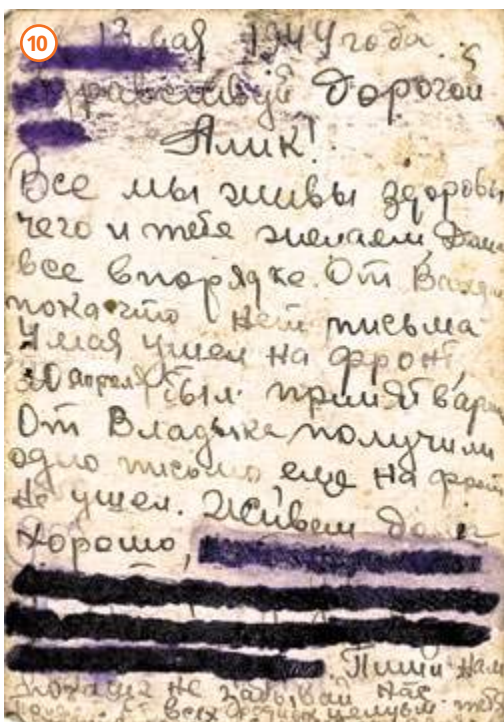 10
13 мая 1944 года.
Здравствуй дорогой
Алик!
Все мы живы здоровы
чего и тебе желаем, дома
все в порядке. От Вали
пока что нет письма
4 мая ушел на фронт,
30 апреля был принят в
От Владика получили
одно письмо, еще на фронт
не ушел. Живем дома
хорошо,
Пиши нам
не забывай нас
всех целуем тебя